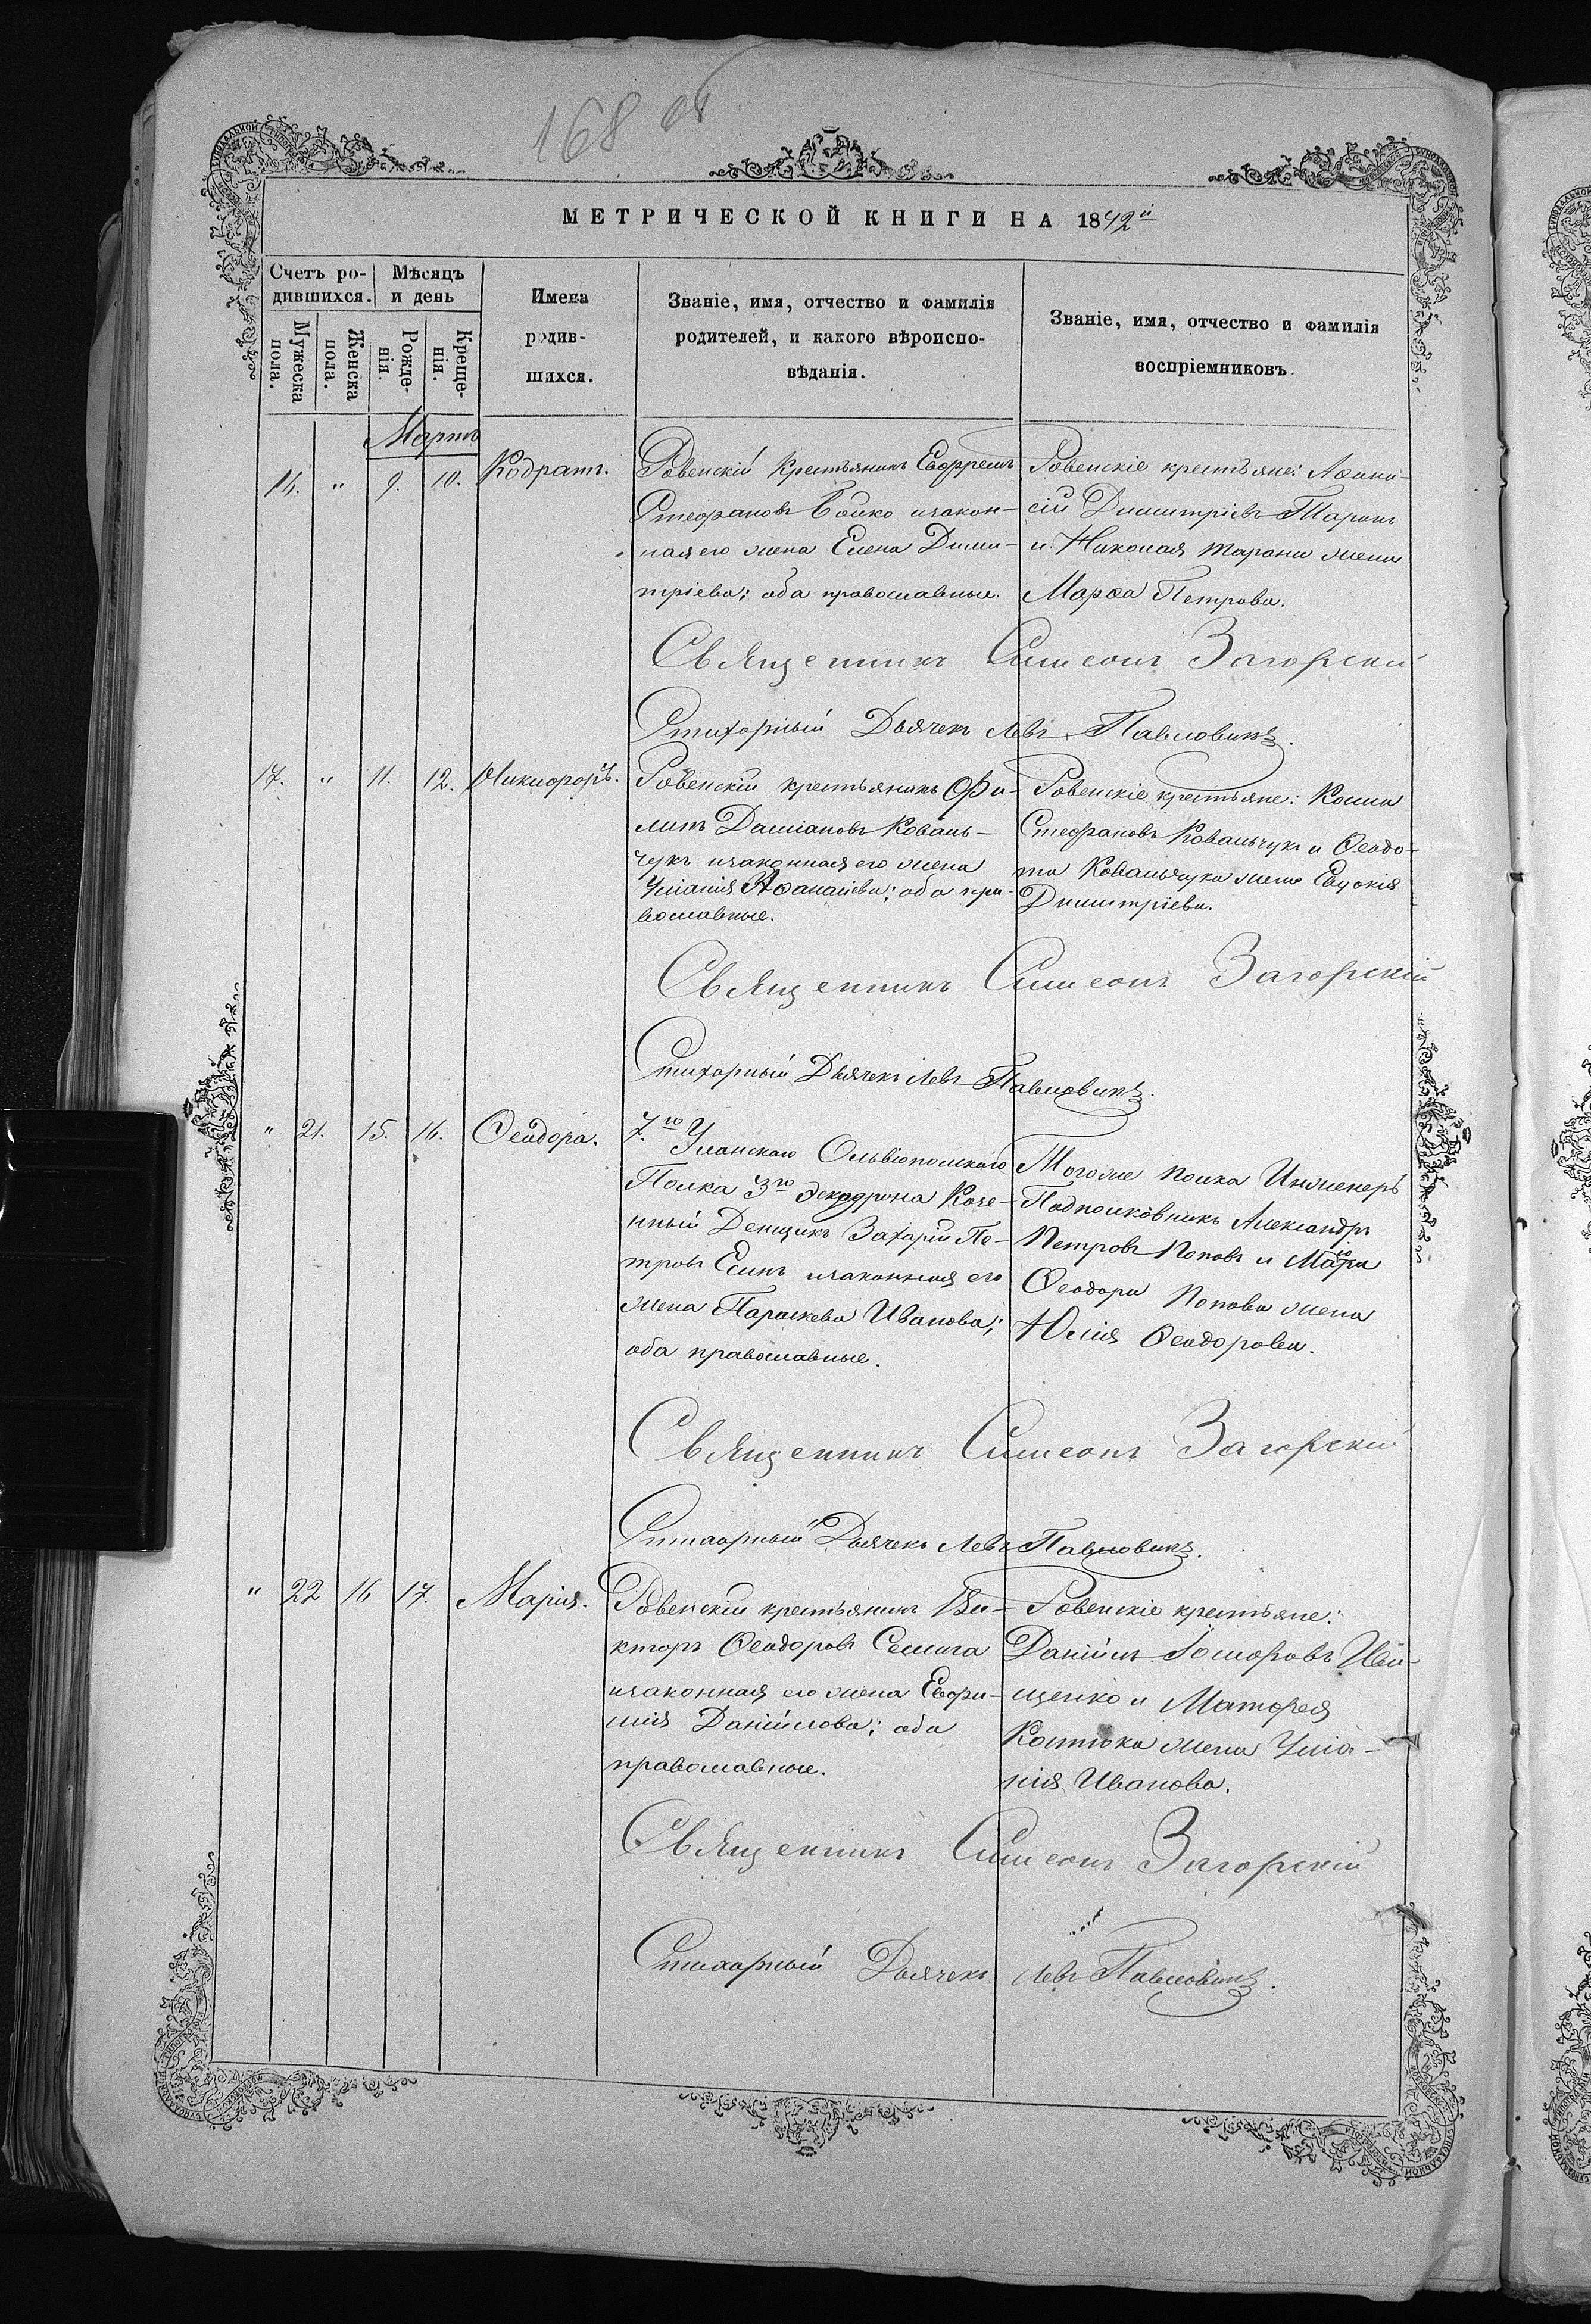 168 об
МЕТРИЧЕСКОЙ КНИГИ НА 1842й
Счетъ ро-
дившихся.
Мѣсяцъ
и день
Мужеска
пола.
Женска
пола.
Рожде-
нія.
Креще-
нія.
Имена
родив-
шихся.
Званіе, имя, отчество и фамилія
родителей, и какого вѣроиспо-
вѣданія.
Званіе, имя, отчество и фамилія
воспріемниковъ.
Мартъ
16. " 9. 10. Кодратъ.
Ровенскій крестьянинъ Ефремъ
Стефановъ Бойко изакон-
ная его жена Елена Дими-
тріева; оба православные.
Ровенскіе крестьяне: Аѳана-
сій Димитріевъ Таранъ
и Николая Тарана жена
Марѳа Петрова.
Священникъ Симеонъ Загорскій
Стихарный Дьячекъ Левъ Павловичъ.
17. " 11. 12. Никифоръ.
Ровенскій крестьянинъ Фи-
липъ Даміановъ Коваль-
чукъ изаконная его жена
Уліанія Аѳанасіева; оба пра-
вославные.
Ровенскіе крестьяне: Косма
Стефановъ Ковальчукъ и Ѳеодо-
та Ковальчука жена Евдокія
Димитріева.
Священникъ Симеонъ Загорскій
Стихарный Дьячекъ Левъ Павловичъ.
" 21. 15. 16. Ѳеодора.
7.го Уланскаго Ольвіопольскаго
Полка 3го эскадрона Казе-
нный Денщикъ Захарій Пе-
тровъ Есинъ изаконная его
жена Параскева Иванова;
оба православные.
Тогоже полка Инженеръ
Подполковникъ Александръ
Петровъ Поповъ и
Ѳеодора Попова жена
Юлія Ѳеодорова.
Священникъ Симеонъ Загорскій
Стихарный Дьячекъ Левъ Павловичъ.
" 22 16 17. Марія.
Ровенскій крестьянинъ Ви-
кторъ Ѳеодоровъ Семига
изаконная его жена Евфи-
мія Даніилова; оба
православные.
Ровенскіе крестьяне:
Даніилъ Ива-
щенко и Матфея
Костюка жена Уліа-
нія Иванова.
Священникъ Симеонъ Загорскій
Стихарный Дьячекъ Левъ Павловичъ.